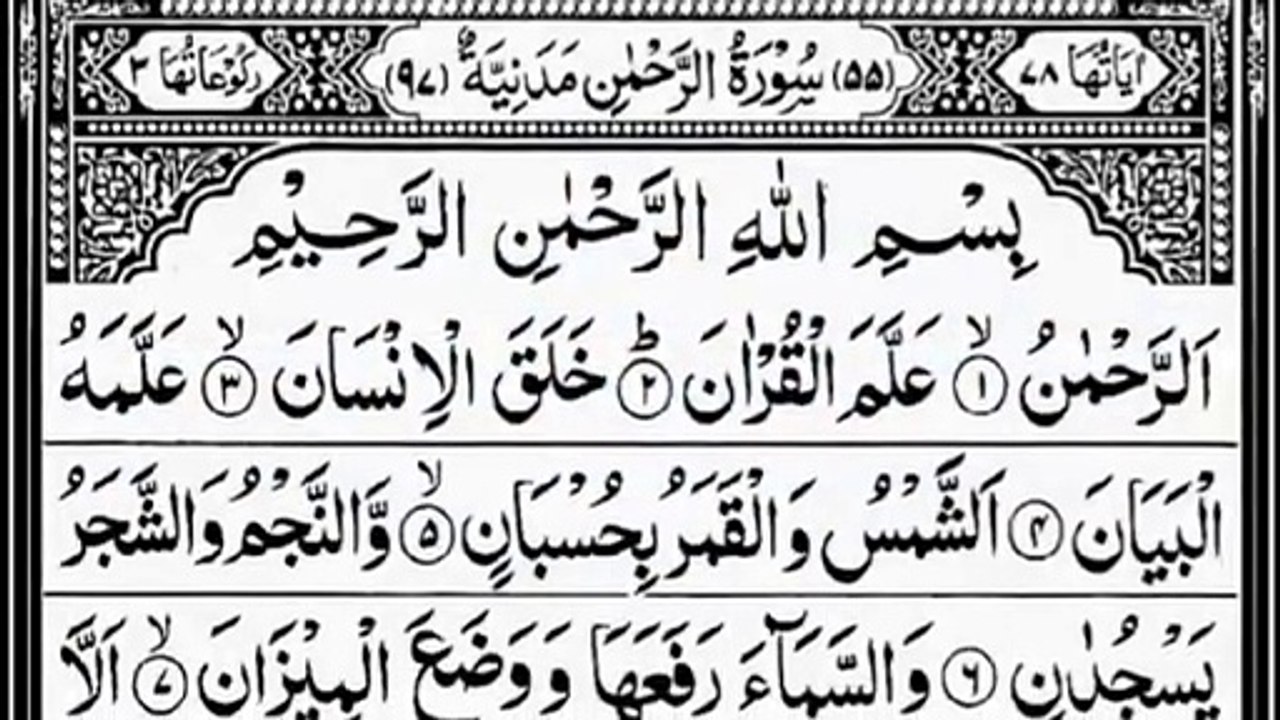 اٰيَاتُهَا ٧٨ (٥٥) سُوْرَةُ الرَّحْمٰنِ مَدَنِيَّةٌ (٩٧) رُكُوْعَاتُهَا ٣
بِسْمِ اللّٰهِ الرَّحْمٰنِ الرَّحِيْمِ
اَلرَّحْمٰنُ ۙ‏ ﴿١﴾ عَلَّمَ الْقُرْاٰنَ ؕ‏ ﴿٢﴾ خَلَقَ الْاِنْسَانَ ۙ‏ ﴿٣﴾ عَلَّمَهُ
الْبَيَانَ ﴿۴﴾ اَلشَّمْسُ وَالْقَمَرُ بِحُسْبَانٍ ۙ‏ ﴿۵﴾ وَّالنَّجْمُ وَالشَّجَرُ
يَسْجُدٰنِ ﴿٦﴾ وَالسَّمَآءَ رَفَعَهَا وَوَضَعَ الْمِيْزَانَ ۙ‏ ﴿٧﴾ اَلَّا